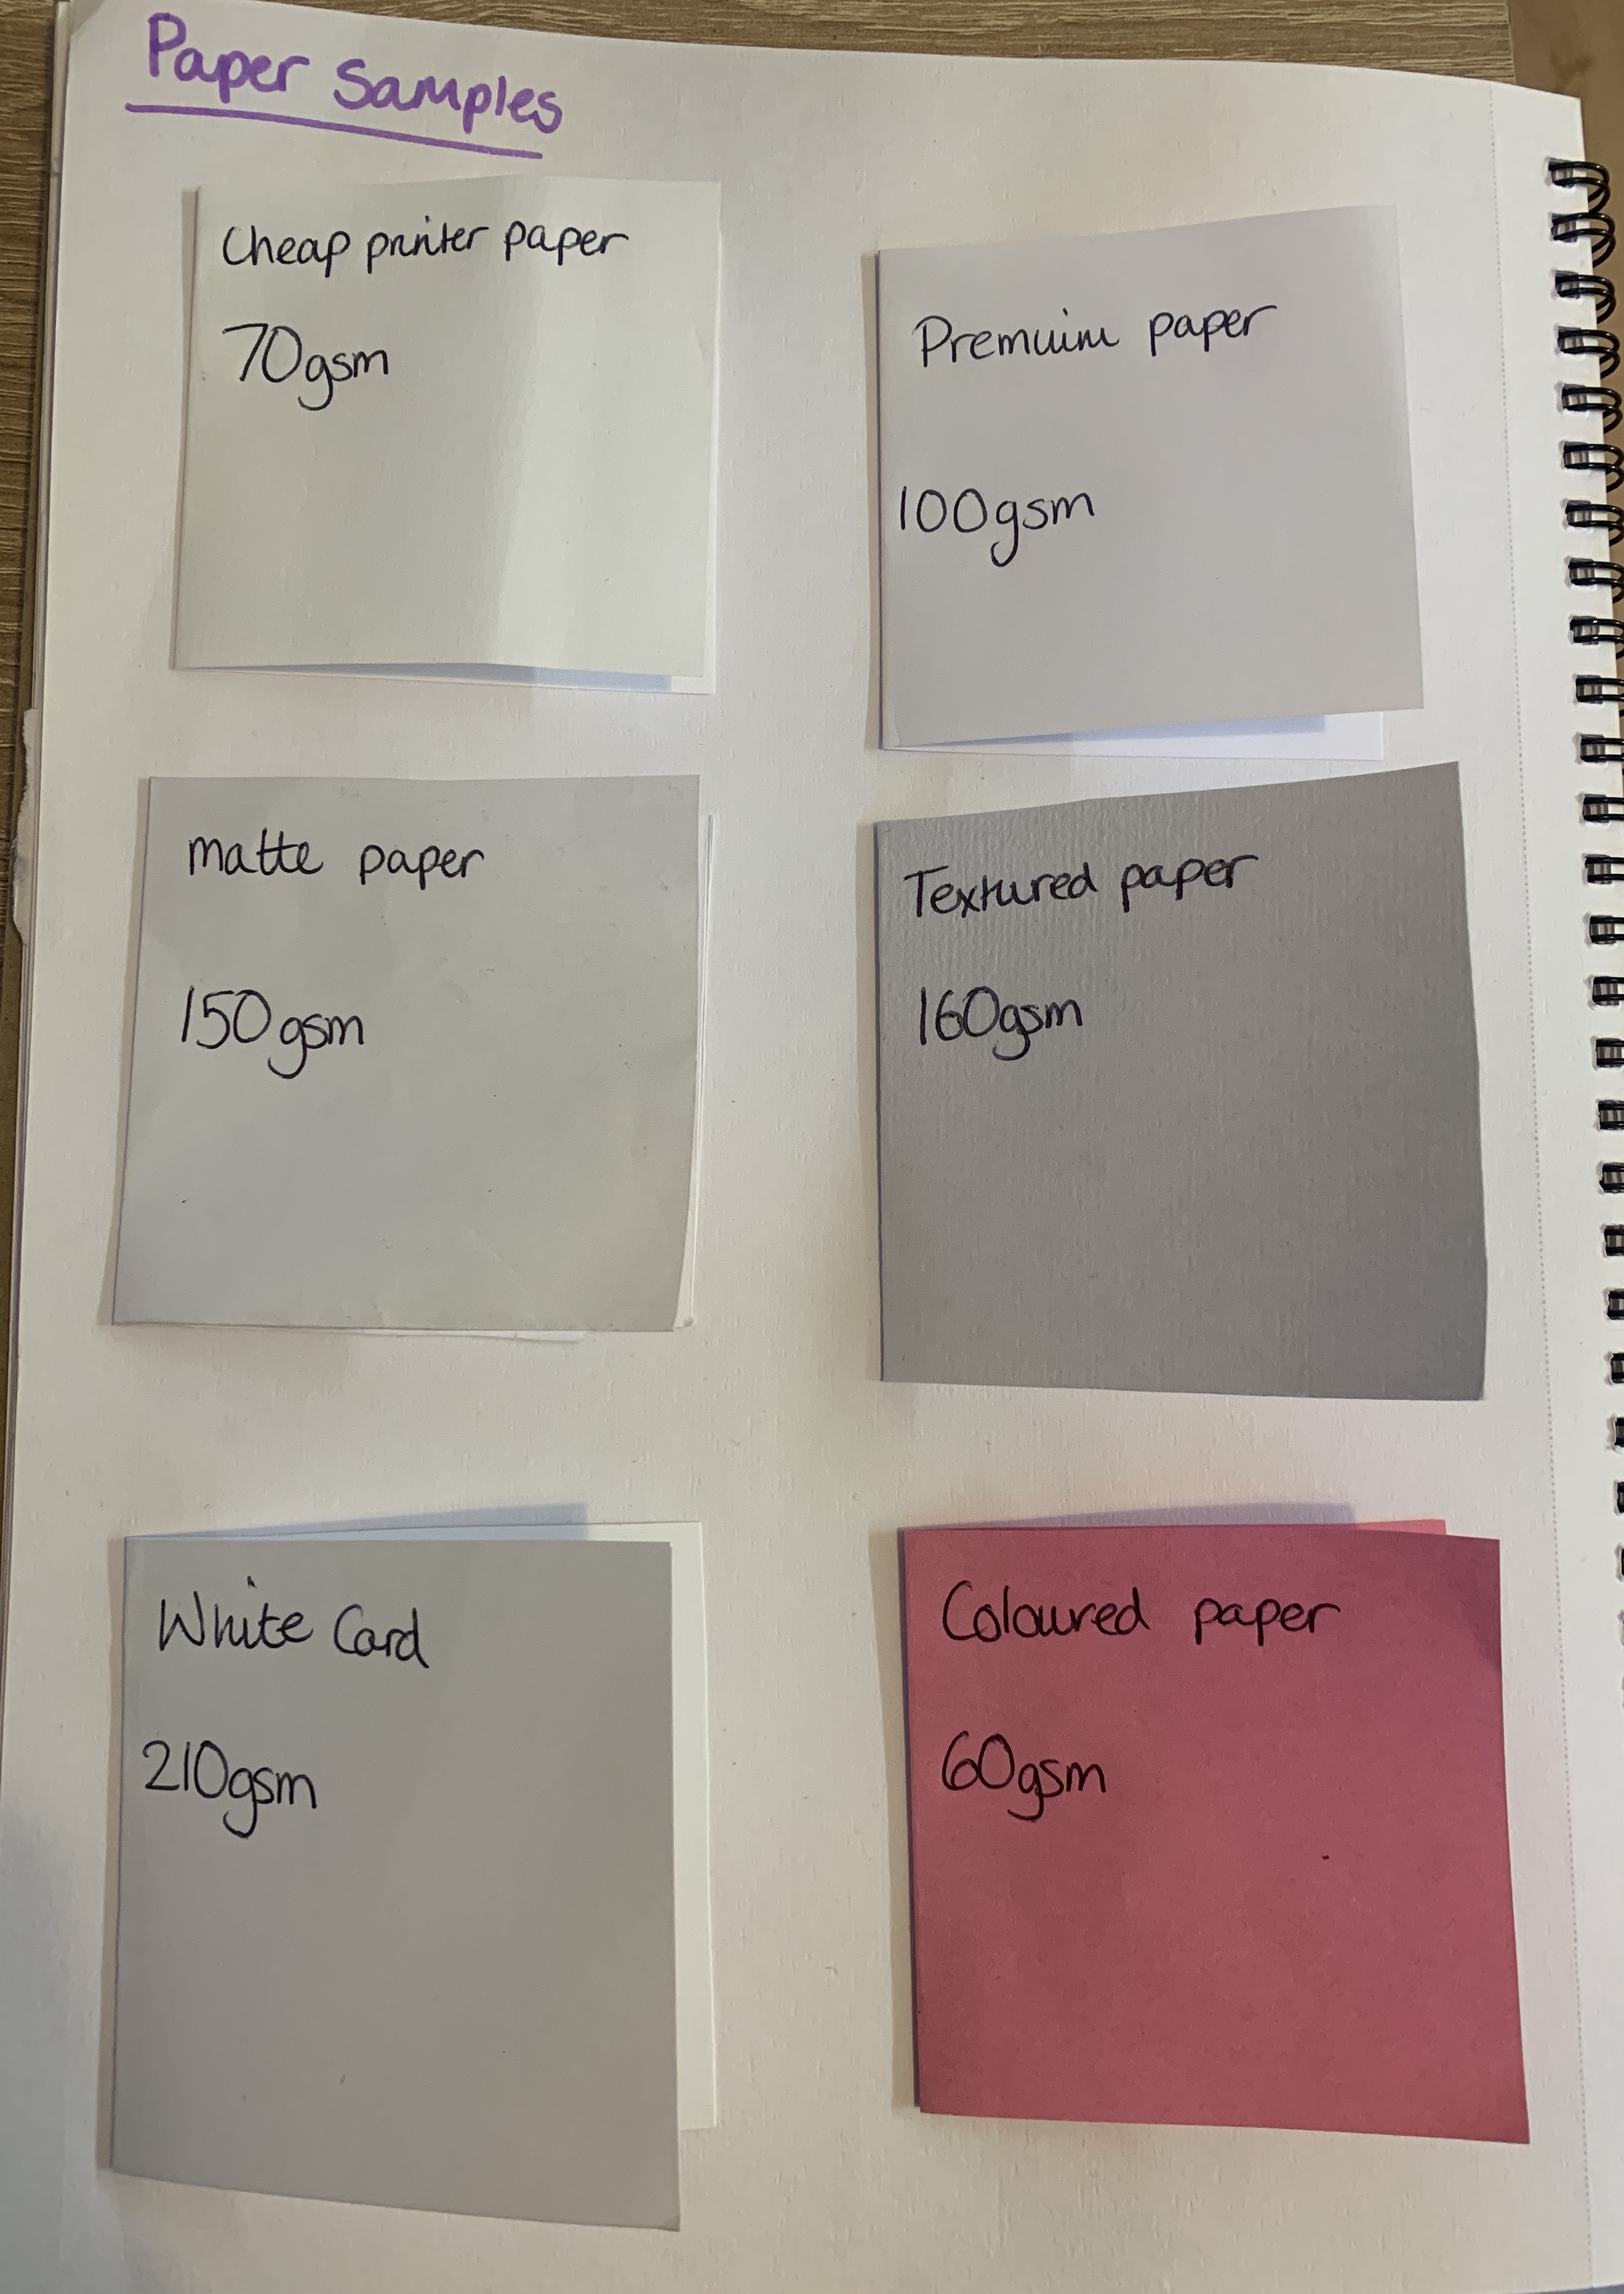 Paper Samples
Cheap printer paper
70gsm
Premuim paper
100gsm
matte paper
150gsm
Textured paper
160gsm
White Card
210gsm
Coloured paper
60gsm